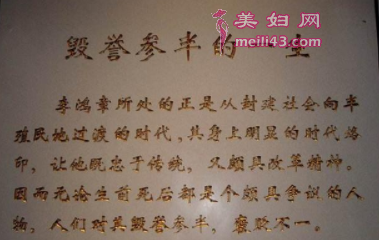 美妇网
meili43.com
毁誉参半的一生
李鸿章所处的正是从封建社会向半
殖民地过渡的时代，其身上明显的时代烙
印，让他既忠于传统，又颇具改革精神。
因而无论生前死后都是个颇具争议的人
物，人们对其毁誉参半，褒贬不一。